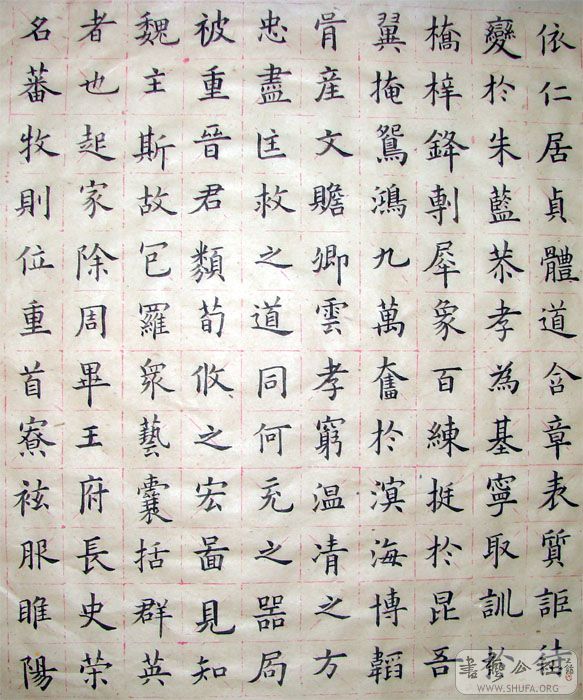 依仁居貞體道含章表質詎
變於朱藍恭孝為基寧取訓於
橋梓鋒剸犀象百練挺於昆吾
翼掩鴛鴻九萬奮於溟海博韜
骨産文贍卿雲孝窮温凊之方
忠盡匡救之道同何充之器局
被重晉君類荀攸之宏啚見知
魏主斯故包羅眾藝囊括群英
者也起家除周畢王府長史荣
名蕃牧則位重首寮袨服睢陽
WWW.SHUFA.ORG